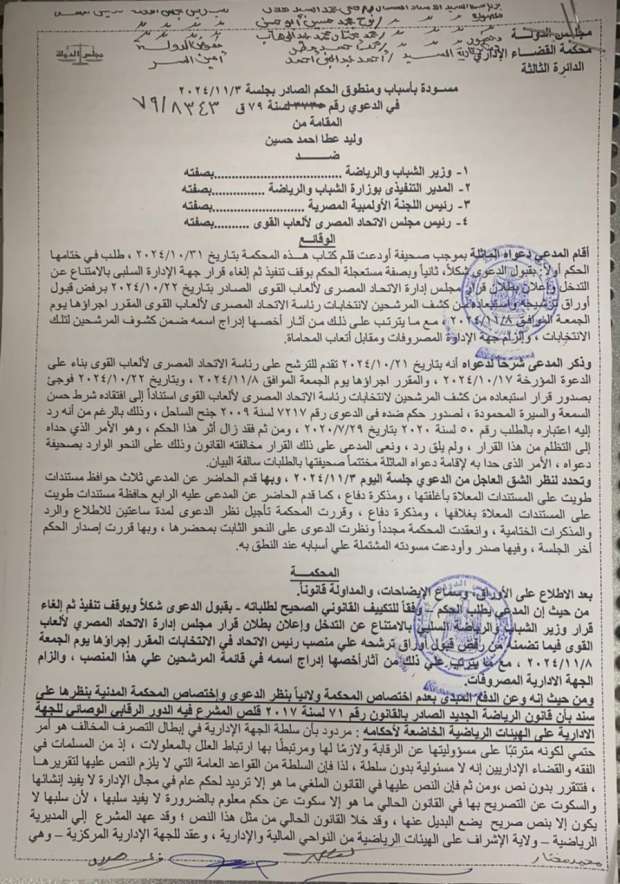 مجلس الدولة
مجلس الدولة
محكمة القضاء الإداري
الدائرة الثالثة
مسودة بأسباب ومنطوق الحكم الصادر بجلسة ٢٠٢٤/١١/٣
في الدعوي رقم لسنة ٧٩ ق ٧٩/٨٣٤٣
المقامة من
وليد عطا احمد حسين
ضد
١- وزير الشباب والرياضة ...................................بصفته
٢- المدير التنفيذى بوزارة الشباب والرياضة ...............بصفته
٣- رئيس اللجنة الأولمبية المصرية .........................بصفته
٤- رئيس مجلس الاتحاد المصرى لألعاب القوى ..........بصفته
الوقائع
أقام المدعي دعواه الماثلة بموجب صحيفة أودعت قلم كتاب هذه المحكمة بتاريخ ٢٠٢٤/١٠/٣١ ، طلب في ختامها
الحكم أولاً: بقبول الدعوى شكلاً، ثانياً وبصفة مستعجلة الحكم بوقف تنفيذ ثم إلغاء قرار جهة الإدارة السلبي بالامتناع عن
التدخل وإعلان بطلان قرار مجلس إدارة الاتحاد المصرى لألعاب القوى الصادر بتاريخ ٢٠٢٤/١٠/٢٢ برفض قبول
أوراق ترشيحه واستبعاده من كشف المرشحين لانتخابات رئاسة الاتحاد المصرى لألعاب القوى المقرر اجراؤها يوم
الجمعة الموافق ٢٠٢٤/١١/٨ ، مع ما يترتب على ذلك من آثار أخصها إدراج اسمه ضمن كشوف المرشحين لتلك
الانتخابات ، وإلزام جهة الإدارة المصروفات ومقابل أتعاب المحاماة.
وذكر المدعى شرحاً لدعواه أنه بتاريخ ٢٠٢٤/١٠/٢١ تقدم للترشح على رئاسة الاتحاد المصرى لألعاب القوى بناء على
الدعوة المؤرخة ٢٠٢٤/١٠/١٧ ، والمقرر اجراؤها يوم الجمعة الموافق ٢٠٢٤/١١/٨ ، وبتاريخ ٢٠٢٤/١٠/٢٢ فوجئ
بصدور قرار استبعاده من كشف المرشحين لانتخابات رئاسة الاتحاد المصرى لألعاب القوى استناداً إلى افتقاده شرط حسن
السمعة والسيرة المحمودة ، لصدور حكم ضده فى الدعوى رقم ٧٢١٧ لسنة ٢٠٠٩ جنح الساحل ، وذلك بالرغم من أنه رد
إليه اعتباره بالطلب رقم ٥٠ لسنة ٢٠٢٠ بتاريخ ٢٠٢٠/٧/٢٩ ، ومن ثم فقد زال أثر هذا الحكم ، وهو الأمر الذي حداه
إلى التظلم من هذا القرار ، ولم يلق رد ، ونعى المدعى على ذلك القرار مخالفته القانون وذلك على النحو الوارد بصحيفة
دعواه ، الأمر الذى حدا به لإقامة دعواه الماثلة مختتماً صحيفتها بالطلبات سالفة البيان.
وتحدد لنظر الشق العاجل من الدعوي جلسة اليوم ٢٠٢٤/١١/٣ ، وبها قدم الحاضر عن المدعي ثلاث حوافظ مستندات
طويت على المستندات المعلاة بأغلفتها ، ومذكرة دفاع ، كما قدم الحاضر عن المدعى عليه الرابع حافظة مستندات طويت
على المستندات المعلاة بغلافها ، ومذكرة دفاع ، وقررت المحكمة تأجيل نظر الدعوى لمدة ساعتين للاطلاع والرد
والمذكرات الختامية ، وانعقدت المحكمة مجدداً ونظرت الدعوى على النحو الثابت بمحضرها ، وبها قررت إصدار الحكم
آخر الجلسة ، وفيها صدر وأودعت مسودته المشتملة علي أسبابه عند النطق به.
المحكمة
بعد الاطلاع على الأوراق، وسماع الإيضاحات، والمداولة قانوناً.
من حيث إن المدعي يطلب الحكم – وفقاً للتكييف القانوني الصحيح لطلباته - بقبول الدعوى شكلاً وبوقف تنفيذ ثم إلغاء
قرار وزير الشباب والرياضة السلبي بالامتناع عن التدخل وإعلان بطلان قرار مجلس إدارة الاتحاد المصري لألعاب
القوى فيما تضمنه من رفض قبول أوراق ترشحه علي منصب رئيس الاتحاد في الانتخابات المقرر إجراؤها يوم الجمعة
٢٠٢٤/١١/٨ ، مع ما يترتب علي ذلك من آثارأخصها إدراج اسمه في قائمة المرشحين علي هذا المنصب ، والزام
الجهة الادارية المصروفات.
ومن حيث إنه وعن الدفع المبدى بعدم اختصاص المحكمة ولائياً بنظر الدعوى وإختصاص المحكمة المدنية بنظرها علي
سند بأن قانون الرياضة الجديد الصادر بالقانون رقم ٧١ لسنة ٢٠١٧ قلص المشرع فيه الدور الرقابي الوصائي للجهة
الادارية على الهيئات الرياضية الخاضعة لأحكامه : مردود بأن سلطة الجهة الإدارية في إبطال التصرف المخالف هو أمر
حتمي لكونه مترتبًا على مسؤوليتها عن الرقابة ولازمًا لها ومرتبطًا بها ارتباط العلل بالمعلولات ، إذ من المسلمات في
الفقه والقضاء الإداريين إنه لا مسئولية بدون سلطة ، لذا فإن السلطة من القواعد العامة التي لا يلزم النص عليها لتقريرها
، فتتقرر بدون نص ،ومن ثم فإن النص عليها في القانون الملغي ما هو إلا ترديد لحكم عام في مجال الإدارة لا يفيد إنشائها
والسكوت عن التصريح بها في القانون الحالي ما هو إلا سكوت عن حكم معلوم بالضرورة لا يفيد سلبها ، لأن سلبها لا
يكون إلا بنص صريح بضع البديل عنها ، وقد خلا القانون الحالي من مثل هذا النص ؛ وقد عهد المشرع إلي المديرية
الرياضية – ولاية الإشراف على الهيئات الرياضية من النواحي المالية والإدارية ، وعقد للجهة الإدارية المركزية – وهي